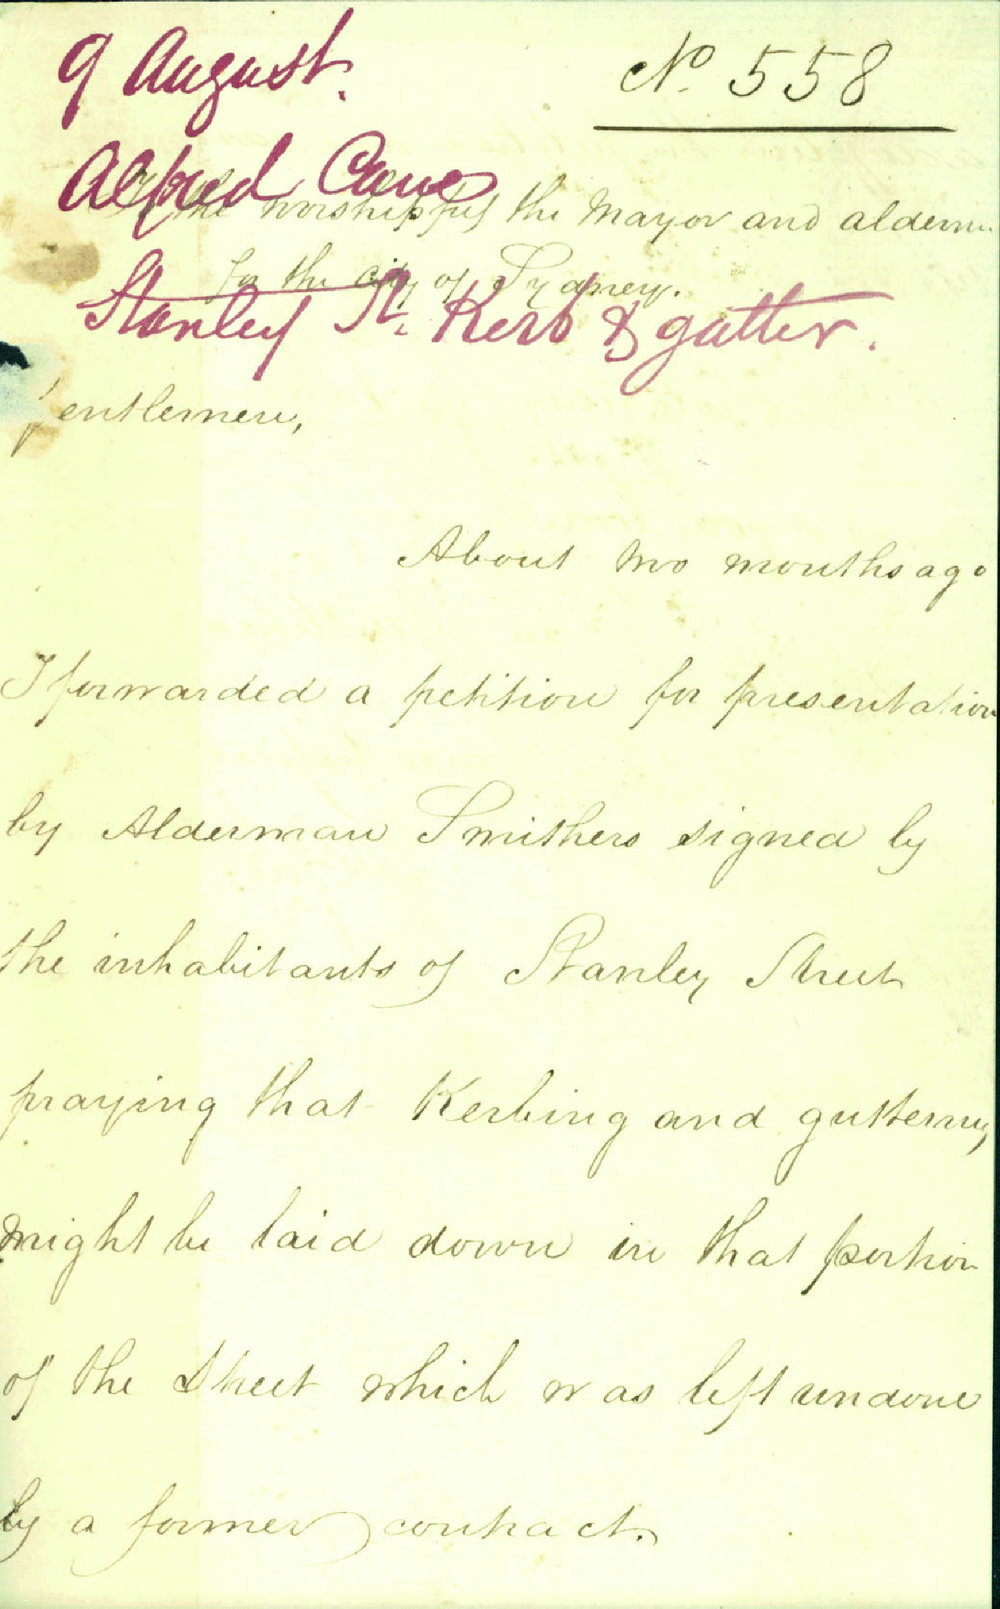 9 August.
No. 558
Alfred Cane
To the worshipful the Mayor and aldermen
for the city of Sydney.
Stanley St. Kerb & gutter.
Gentlemen,
About two months ago
I forwarded a petition for presentation
by Alderman Smithers signed by
the inhabitants of Stanley Street
praying that Kerbing and guttering
might be laid down in that portion
of the Street which was left undone
by a former contract.